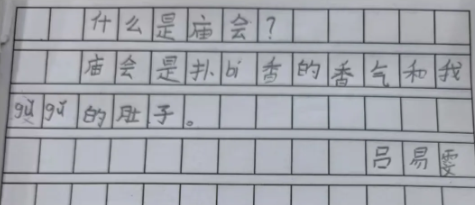 什么是庙会？
庙会是扑bí香的香气和我
gū gū的肚子。
吕易雯